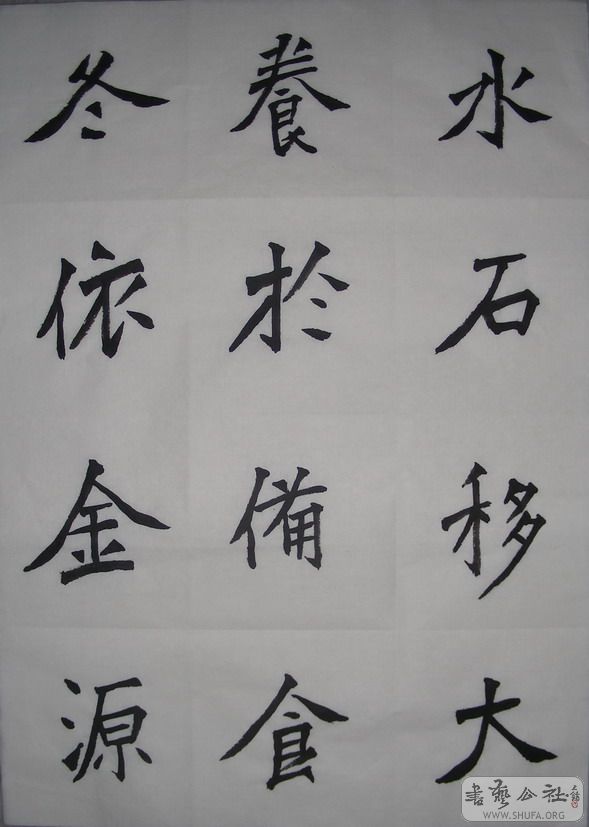 水石移大
養於備食
冬依金源
書藝公社
WWW.SHUFA.ORG